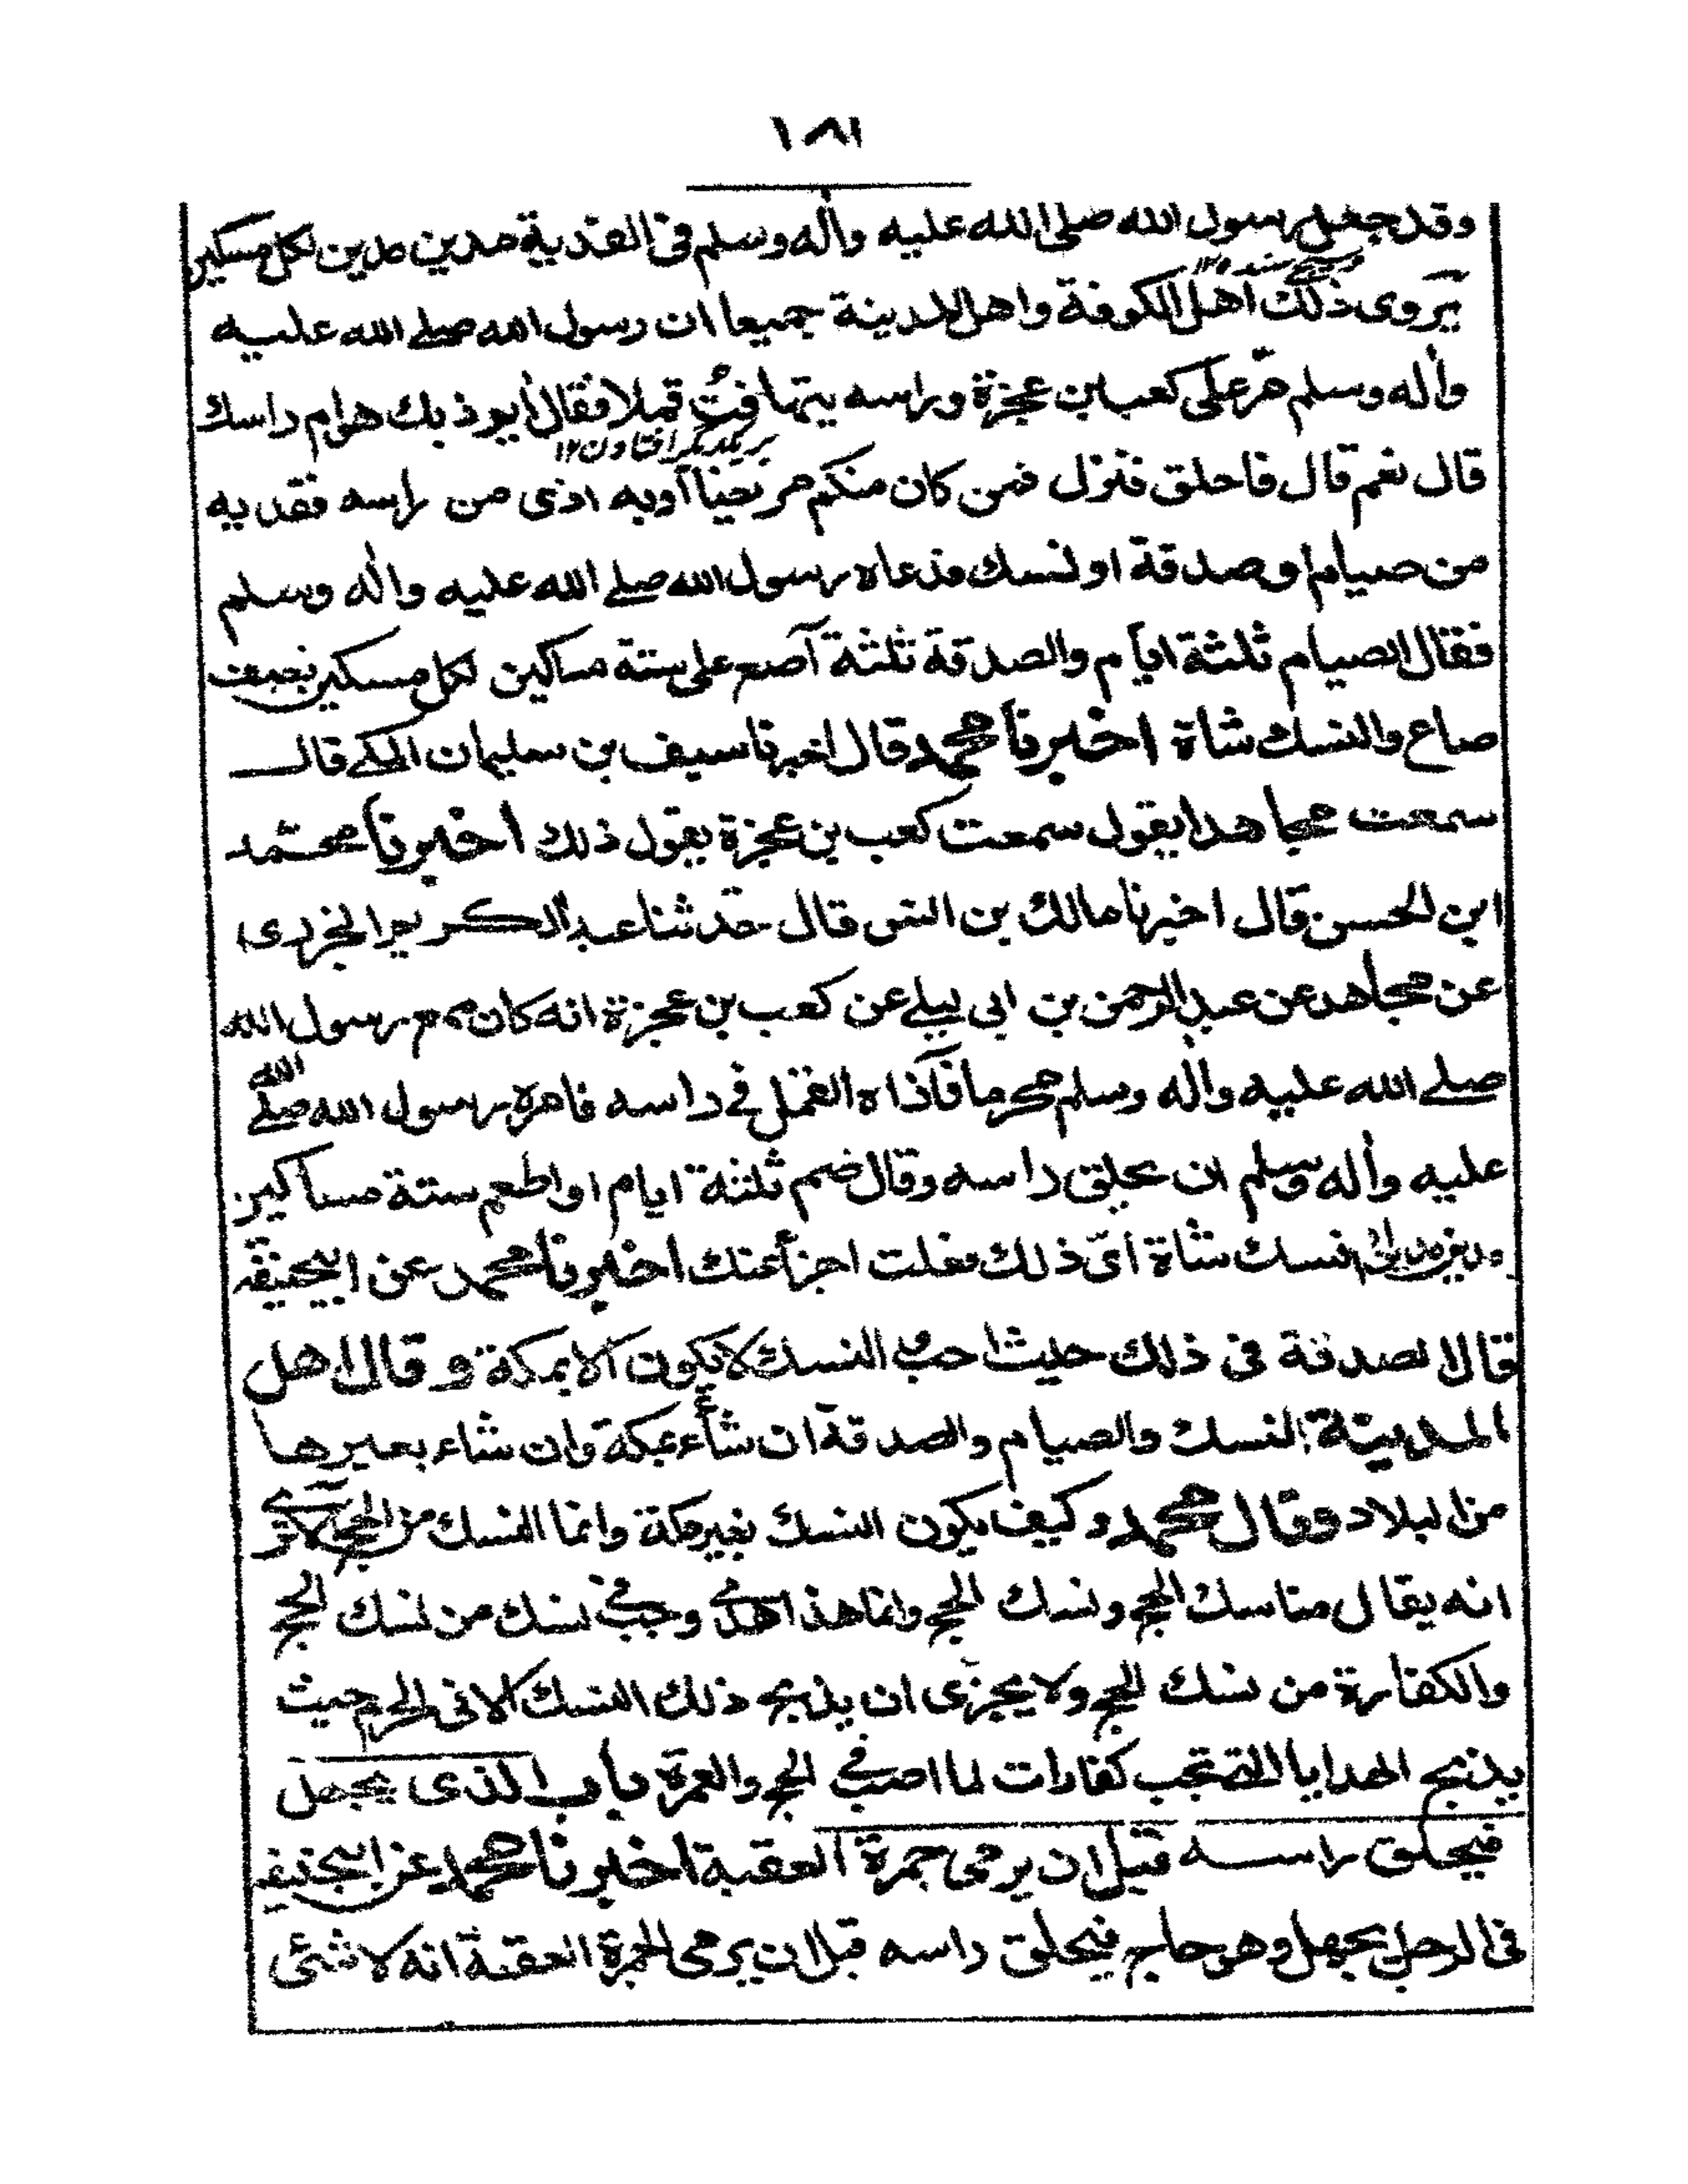 ١٨١
وقد جعل رسول الله صلى الله عليه وأله وسلم فى الفدية مدين مدين لكل مسكين
يروى ذلك اهل الكوفة واهل المدينة جميعا ان رسول الله صلے الله عليه
وأله وسلم مر على كعب بن عجزة وراسه يتهافت قملا فقال أيوذيك هوام راسك
بريكديگر افتادن ١٢
قال نعم قال فاحلق فنزل فمن كان منكم مريضا أوبه اذى من راسه ففديه
من صيام او صدقة او نسك فدعاه رسول الله صلے الله عليه وأله وسلم
فقال الصيام ثلثة ايام والصدقة ثلثة آصع على ستة مساكين لكل مسكين نصف
صاع والنسك شاة اخبرنا محمد قال اخبرنا سيف بن سليمان المكے قال
سمعت مجاهدا يقول سمعت كعب بن عجزة يقول ذلك اخبرنا محمد
ابن الحسن قال اخبرنا مالك بن انس قال حدثنا عبد الكريم الجزرى
عن مجاهد عن عبد الرحمن بن ابى ليلے عن كعب بن عجزة انه كان مع رسول الله
صلے الله عليه وأله وسلم محرما فآذاه القمل فے راسه فامره رسول الله صلے الله
عليه وأله وسلم ان يحلق راسه وقال صم ثلثة ايام او اطعم ستة مساكين
مدين مدين او انسك شاة اىّ ذلك فعلت اجزأ عنك اخبرنا محمد عن ابيحنيفة
قال الصدقة فى ذلك حيث احب والنسك لا يكون الا بمكة وقال اهل
المدينة النسك والصيام والصدقة ان شاء بمكة وان شاء بغيرها
من البلاد وقال محمد وكيف يكون النسك بغير مكة وانما النسك من الحج الا ترى
انه يقال مناسك الحج ونسك الحج وانما هذا هدى وجب فے نسك من نسك الحج
والكفارة من نسك الحج ولا يجزى ان يذبح ذلك النسك الا فى الحرم حيث
يذبح الهدايا التے تجب كفارات لما اصيب فے الحج والعمرة باب الذى يجهل
فيحلق راسه قبل ان يرمى جمرة العقبة اخبرنا محمد عن ابيحنيفة
فى الرجل يجهل وهو حاج فيحلق راسه قبل ان يرمى الجمرة العقبة انه لا شئى